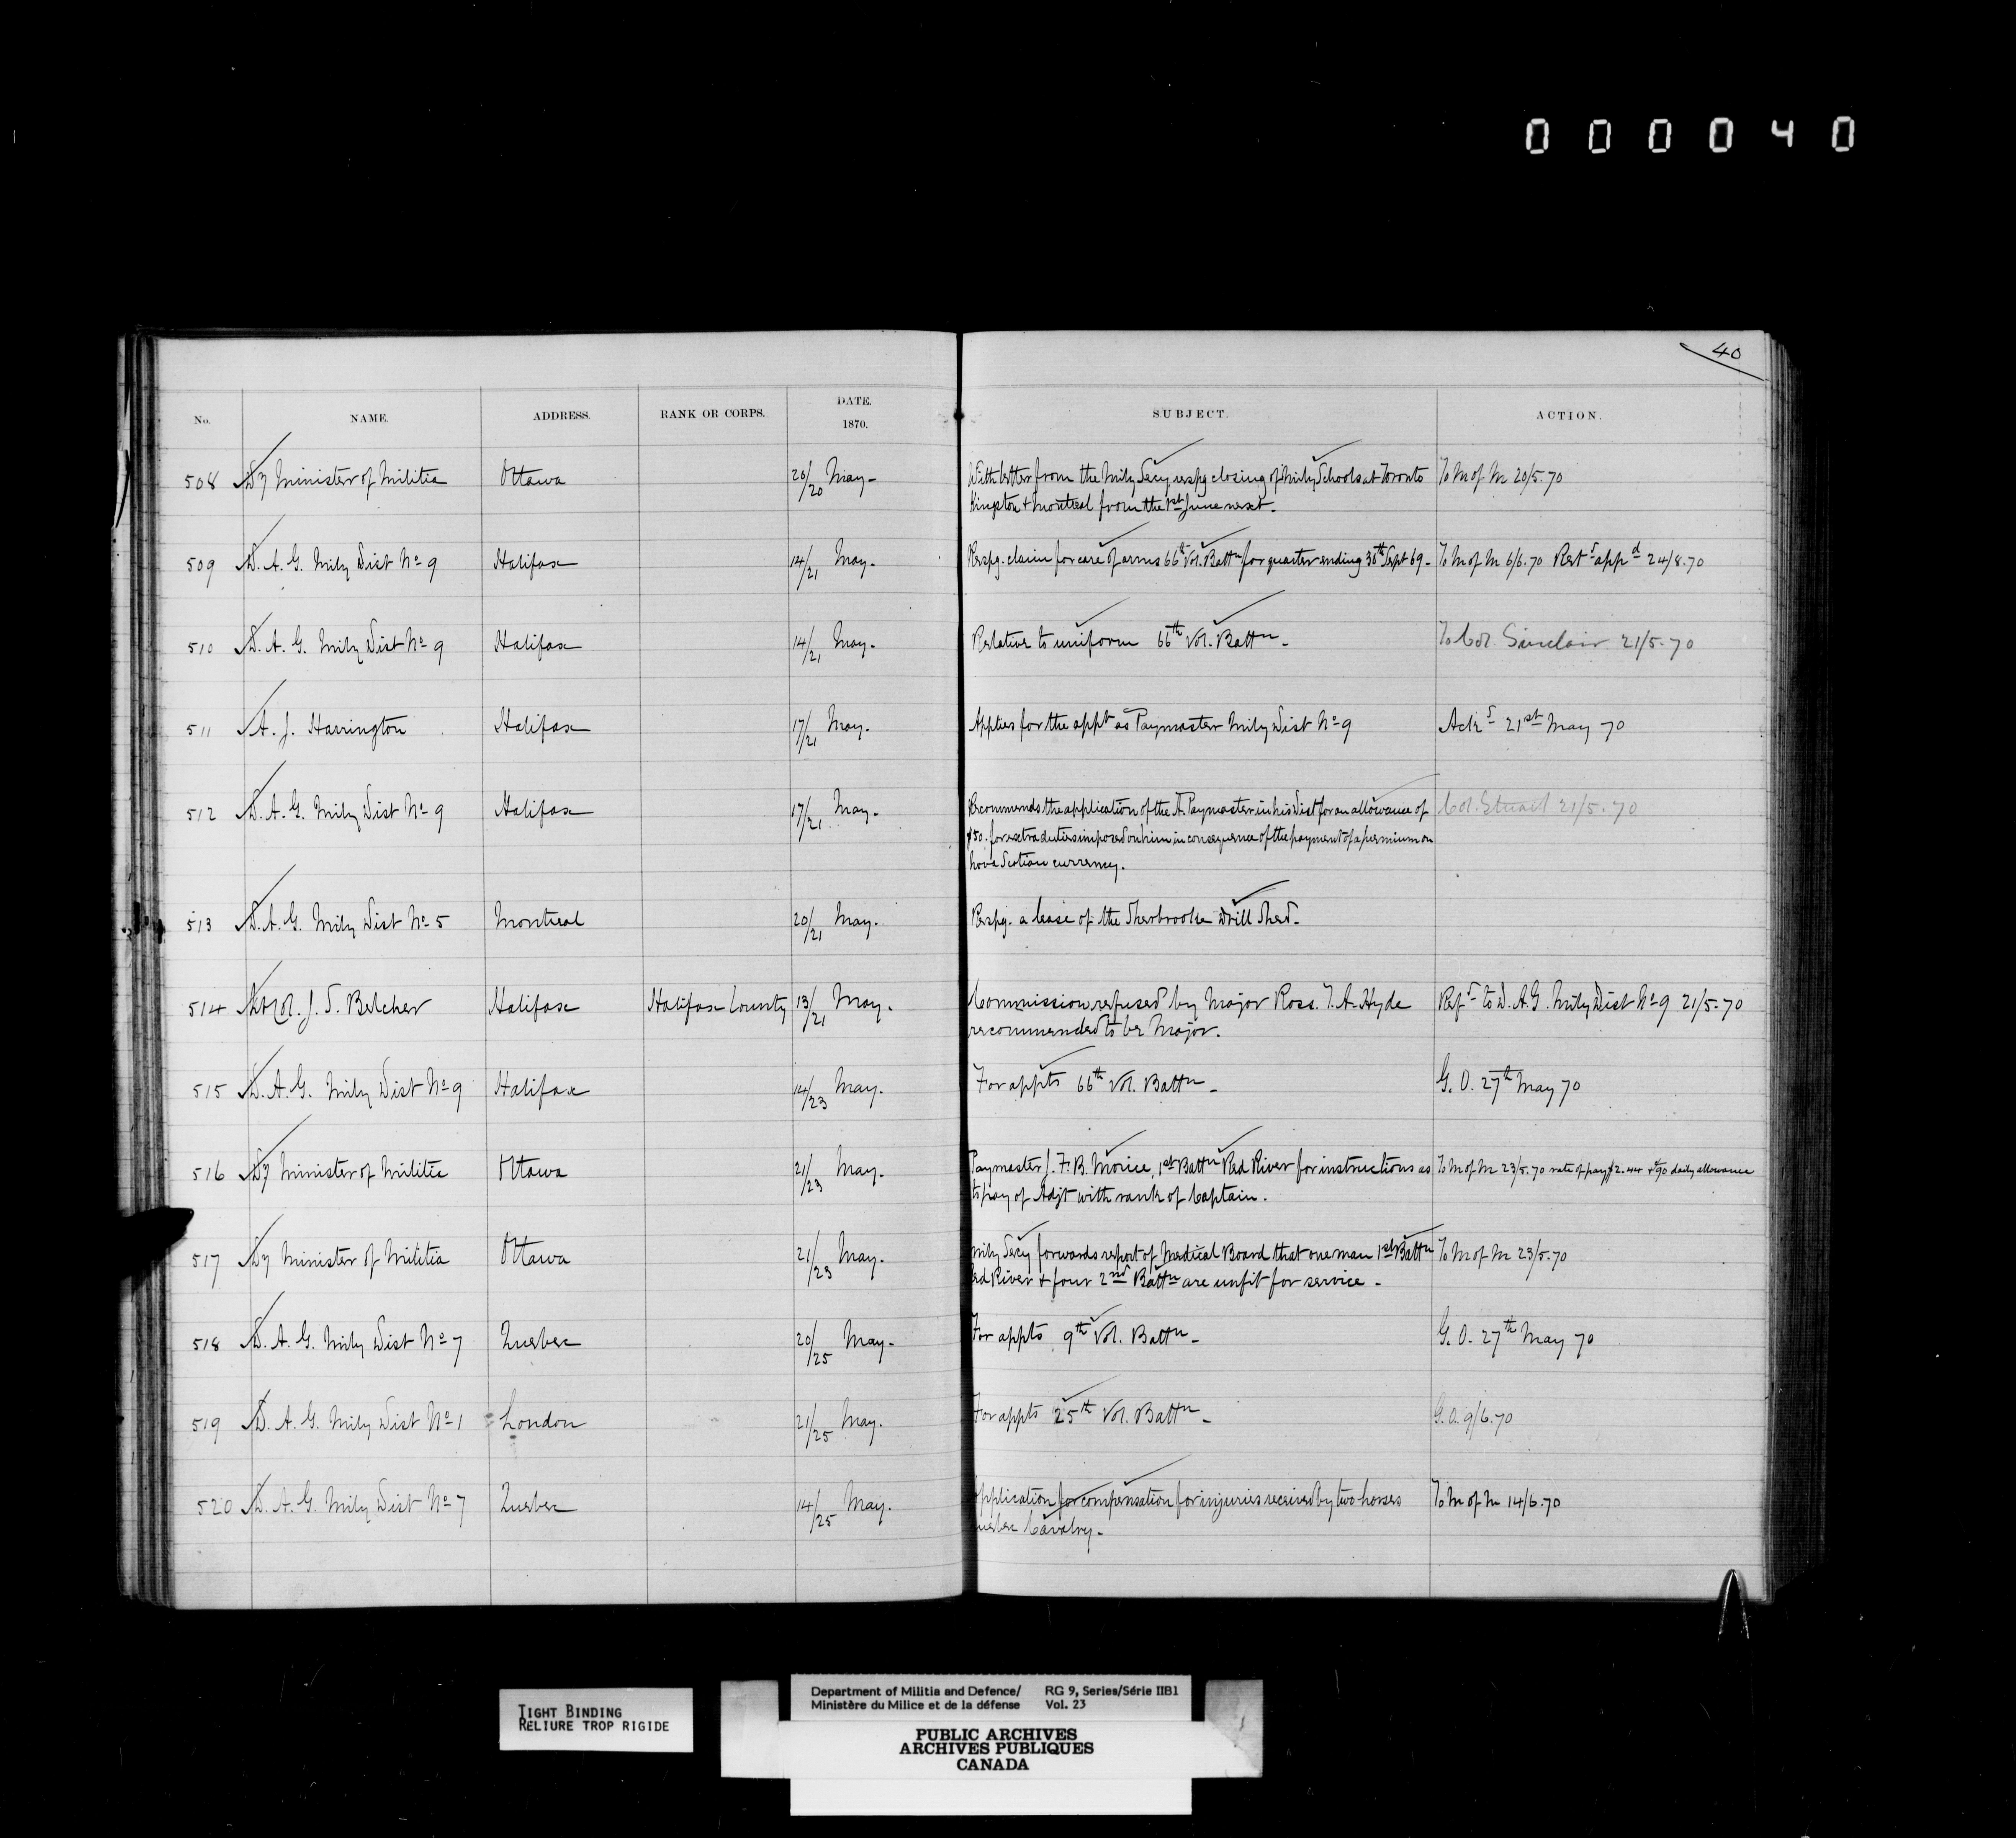 000040
40
No. NAME. ADDRESS. RANK OR CORPS. DATE. 1870. SUBJECT. ACTION.
508 Dy Minister of Militia Ottawa 20/20 May - With letter from the Mily Secy respg closing of Mily Schools at Toronto To M of M 20/5.70
Kingston & Montreal from the 1st June next.
509 D. A. G. Mily Dist No 9 Halifax 14/21 May. Respg. claim for care of arms 66th Vol. Battn for quarter ending 30th Sept 69 - To M of M 6/6.70 Ret appd 24/8.70
510 D. A. G. Mily Dist No 9 Halifax 14/21 May. Relative to uniform 66th Vol. Battn - To Col. Sinclair 21/5.70
511 A. J. Harrington Halifax 17/21 May. Applies for the appt as Paymaster Mily Dist No 9 Ack 21st May 70
512 D. A. G. Mily Dist No 9 Halifax 17/21 May. Recommends the application of the A. Paymaster in his Dist for an allowance of Col. Stuart 21/5.70
$50. for extra duties imposed on him in consequence of the payment of a premium on
Nova Scotian currency.
513 D. A. G. Mily Dist No 5 Montreal 20/21 May. Respg. a lease of the Sherbrooke Drill Shed.
514 Lt Col. J. S. Belcher Halifax Halifax County 13/21 May. Commission refused by Major Ross. T. A. Hyde Refd to D. A. G. Mily Dist No 9 21/5.70
recommended to be Major.
515 D. A. G. Mily Dist No 9 Halifax 14/23 May. For appts 66th Vol. Battn - G. O. 27th May 70
516 Dy Minister of Militia Ottawa 21/23 May. Paymaster J. F. B. Morice, 1st Battn Red River for instructions as To M of M 23/5.70 rate of pay $2. & 90 daily allowance
to pay of Adjt with rank of Captain.
517 Dy Minister of Militia Ottawa 21/23 May. Mily Secy forwards report of Medical Board that one man 1st Battn To M of M 23/5.70
Red River & four 2nd Battn are unfit for service -
518 D. A. G. Mily Dist No 7 Quebec 20/25 May. For appts 9th Vol. Battn - G. O. 27th May 70
519 D. A. G. Mily Dist No 1 London 21/25 May. For appts 25th Vol. Battn - G. O. 9/6.70
520 D. A. G. Mily Dist No 7 Quebec 14/25 May. Application for compensation for injuries received by two horses To M of M 14/6.70
Quebec Cavalry.
TIGHT BINDING
RELIURE TROP RIGIDE
Department of Militia and Defence/ RG 9, Series/Série IIB1
Ministère du Milice et de la défense Vol. 23
PUBLIC ARCHIVES
ARCHIVES PUBLIQUES
CANADA